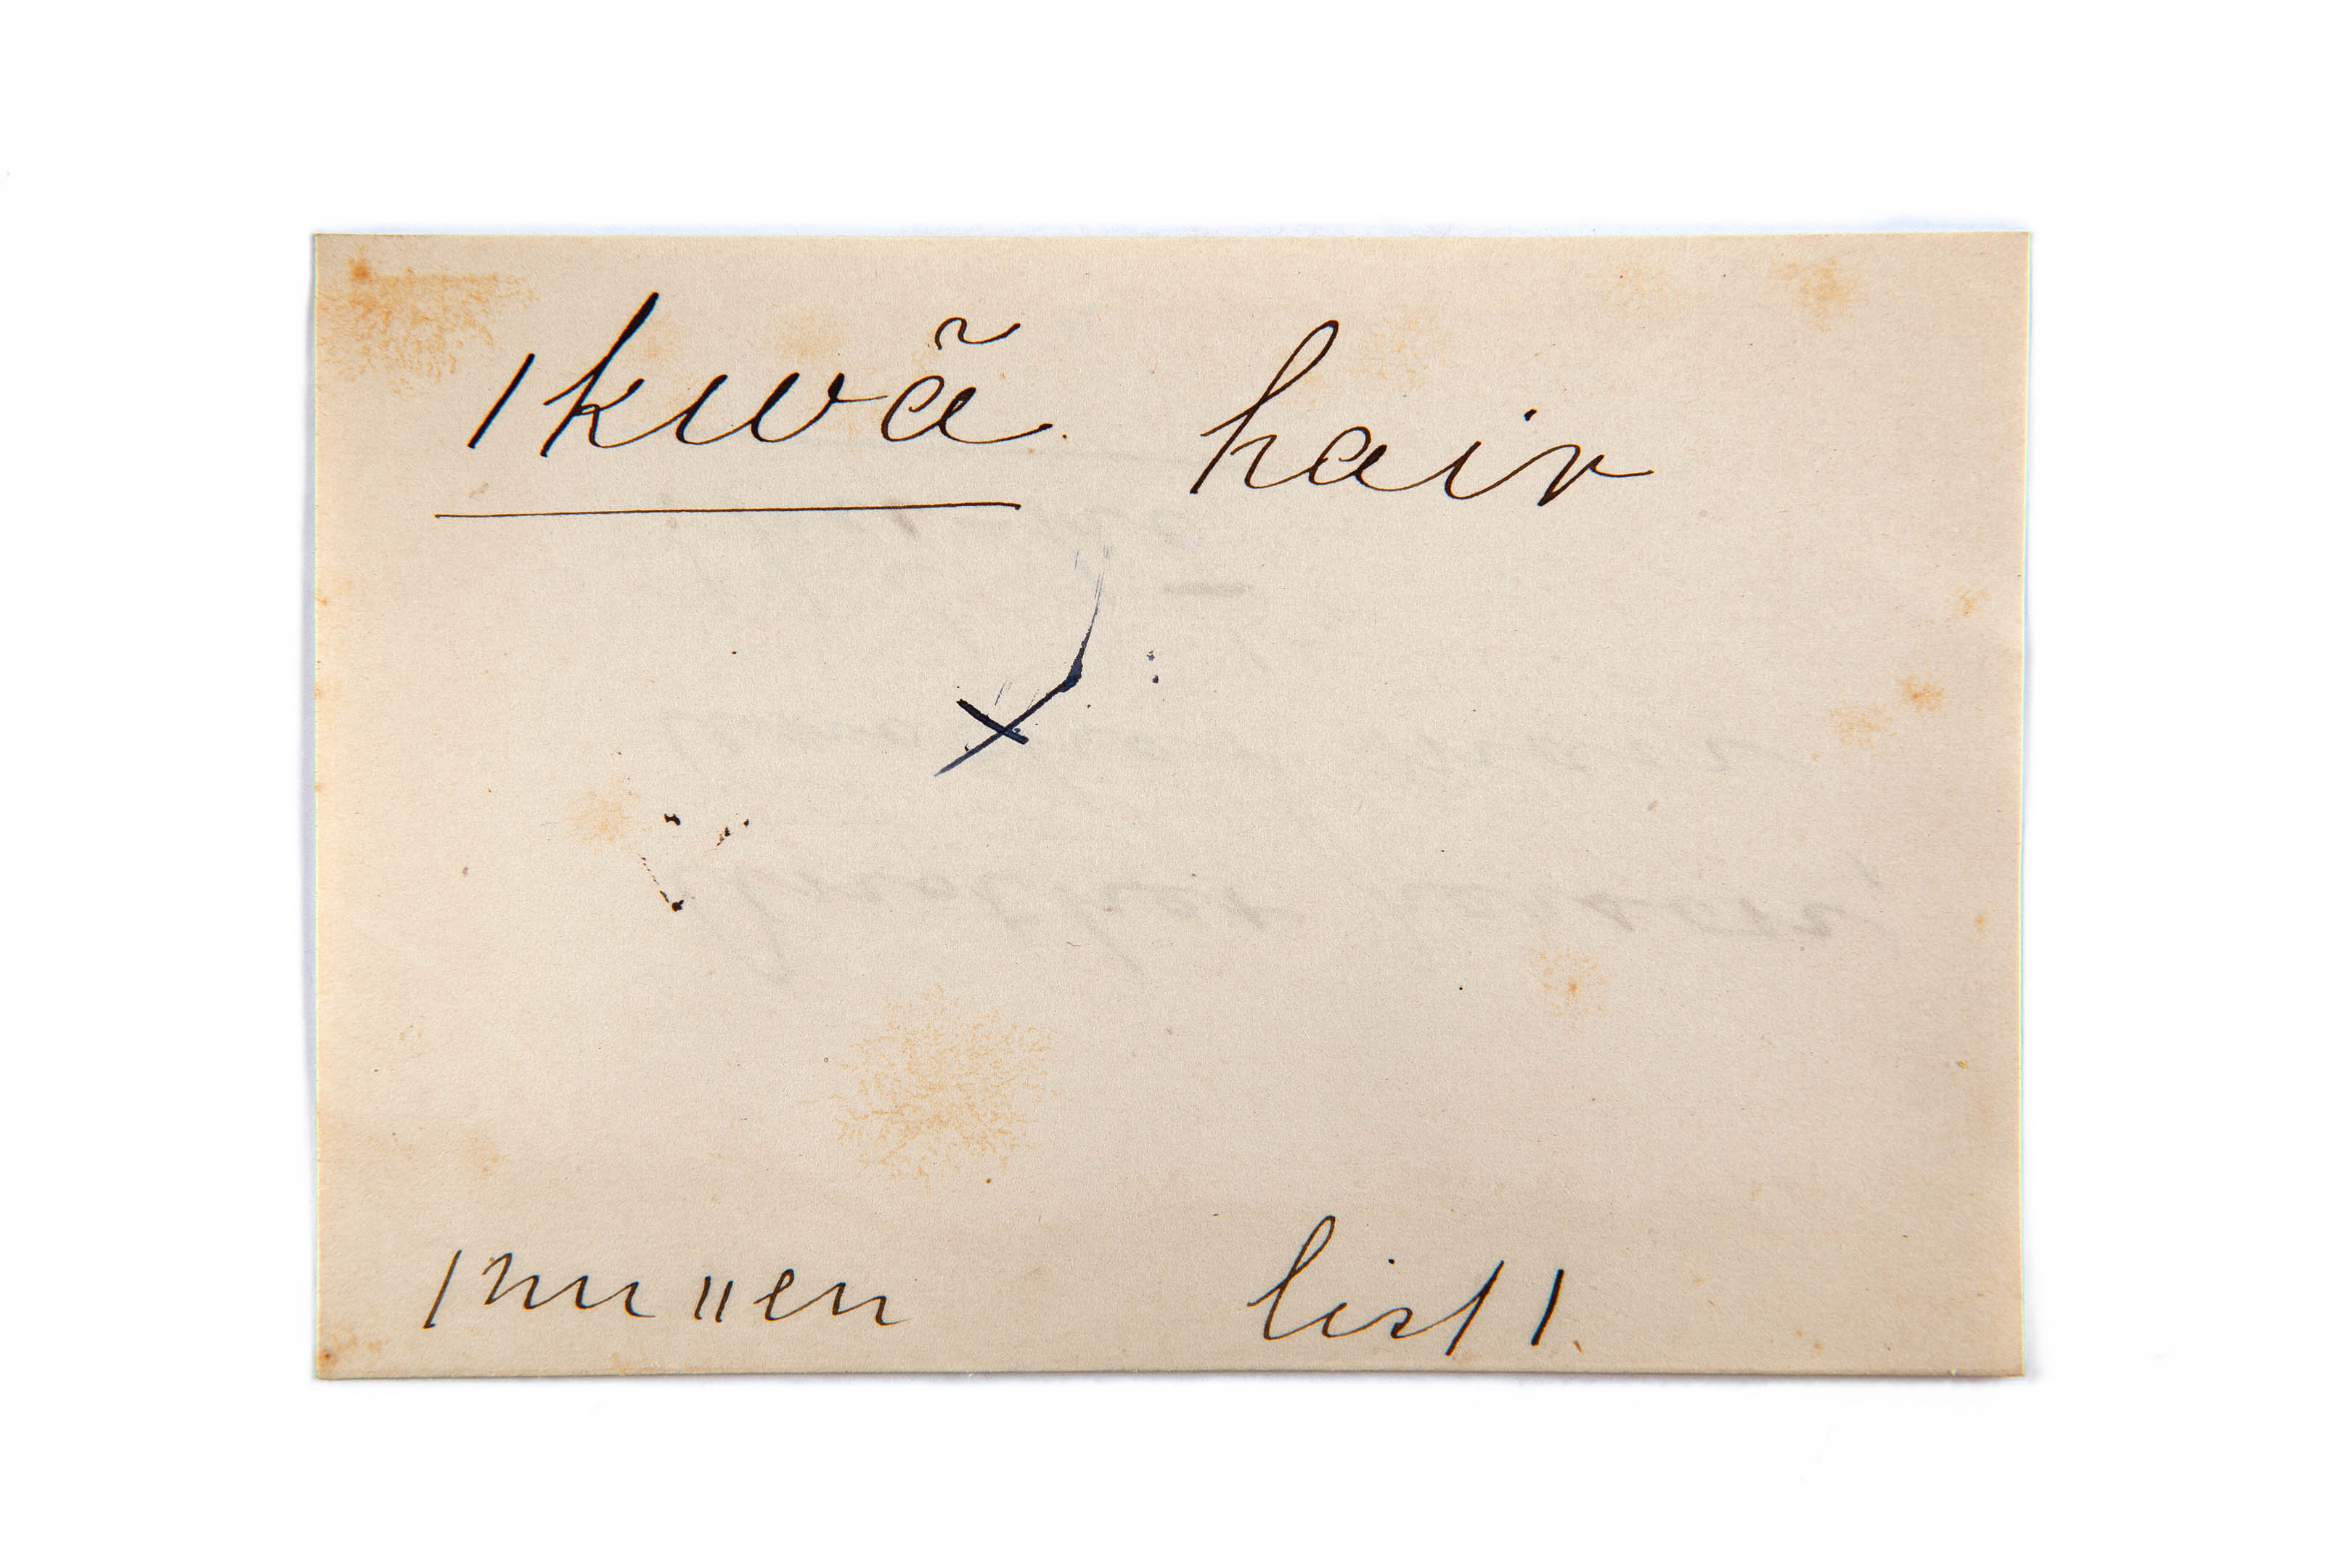 |kwã hair
|nu||en list 1.